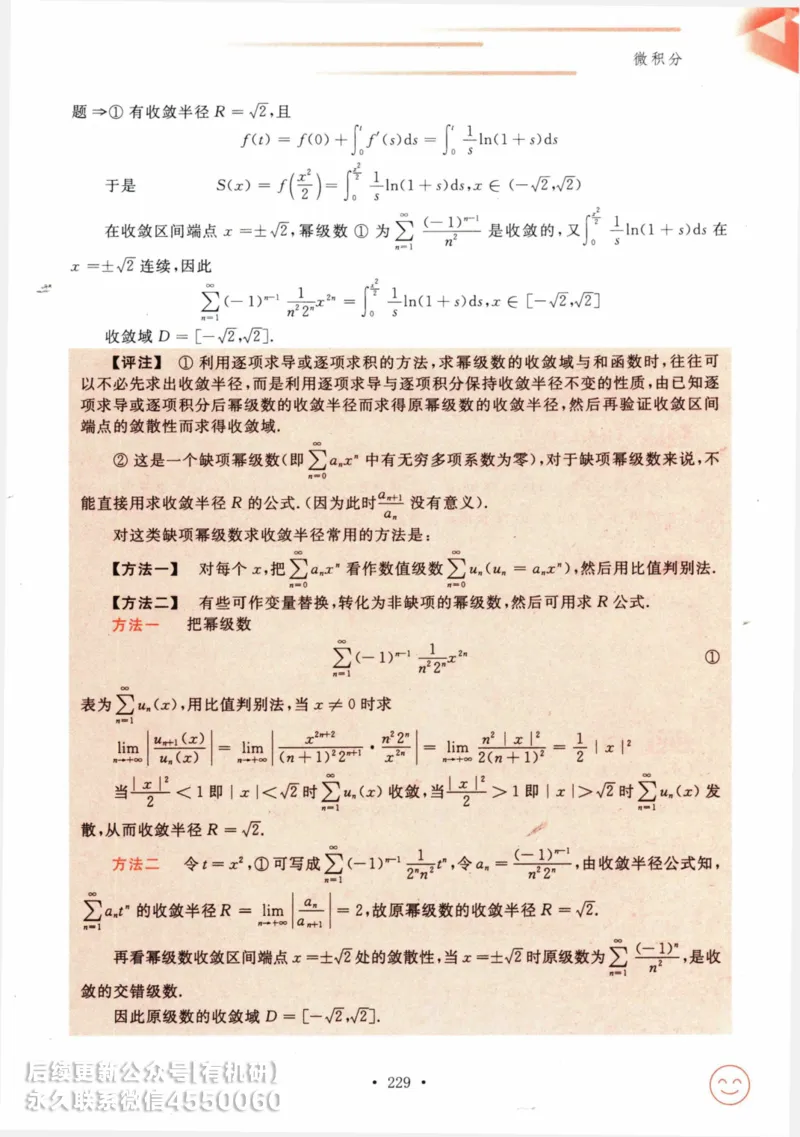 微积分
题⇒① 有收敛半径 R = √2,且
f(t) = f(0) + ∫₀ᵗ f′(s)ds = ∫₀ᵗ (1/s)ln(1+s)ds
于是 S(x) = f(x²/2) = ∫₀^(x²/2) (1/s)ln(1+s)ds, x ∈ (−√2,√2)
在收敛区间端点 x = ±√2,幂级数 ① 为 ∑_{n=1}^{∞} (−1)ⁿ⁻¹/n² 是收敛的,又∫₀^(x²/2) (1/s)ln(1+s)ds 在
x = ±√2 连续,因此
∑_{n=1}^{∞} (−1)ⁿ⁻¹ (1/(n²2ⁿ)) x²ⁿ = ∫₀^(x²/2) (1/s)ln(1+s)ds, x ∈ [−√2,√2]
收敛域 D = [−√2,√2].
【评注】 ① 利用逐项求导或逐项求积的方法,求幂级数的收敛域与和函数时,往往可
以不必先求出收敛半径,而是利用逐项求导与逐项积分保持收敛半径不变的性质,由已知逐
项求导或逐项积分后幂级数的收敛半径而求得原幂级数的收敛半径,然后再验证收敛区间
端点的敛散性而求得收敛域.
② 这是一个缺项幂级数(即 ∑_{n=0}^{∞} aₙxⁿ 中有无穷多项系数为零),对于缺项幂级数来说,不
能直接用求收敛半径 R 的公式.(因为此时 aₙ₊₁/aₙ 没有意义).
对这类缺项幂级数求收敛半径常用的方法是:
【方法一】 对每个 x,把 ∑_{n=0}^{∞} aₙxⁿ 看作数值级数 ∑_{n=0}^{∞} uₙ(uₙ = aₙxⁿ),然后用比值判别法.
【方法二】 有些可作变量替换,转化为非缺项的幂级数,然后可用求 R 公式.
方法一 把幂级数
∑_{n=1}^{∞} (−1)ⁿ⁻¹ (1/(n²2ⁿ)) x²ⁿ ①
表为 ∑_{n=1}^{∞} uₙ(x),用比值判别法,当 x ≠ 0 时求
lim_{n→+∞} |uₙ₊₁(x)/uₙ(x)| = lim_{n→+∞} |x²ⁿ⁺²/((n+1)²2ⁿ⁺¹) · n²2ⁿ/x²ⁿ| = lim_{n→+∞} n²|x|²/(2(n+1)²) = (1/2)|x|²
当 |x|²/2 < 1 即 |x| < √2 时 ∑_{n=1}^{∞} uₙ(x) 收敛,当 |x|²/2 > 1 即 |x| > √2 时 ∑_{n=1}^{∞} uₙ(x) 发
散,从而收敛半径 R = √2.
方法二 令 t = x²,① 可写成 ∑_{n=1}^{∞} (−1)ⁿ⁻¹ (1/(2ⁿn²)) tⁿ,令 aₙ = (−1)ⁿ⁻¹/(n²2ⁿ),由收敛半径公式知,
∑_{n=1}^{∞} aₙtⁿ 的收敛半径 R = lim_{n→+∞} |aₙ/aₙ₊₁| = 2,故原幂级数的收敛半径 R = √2.
再看幂级数收敛区间端点 x = ±√2 处的敛散性,当 x = ±√2 时原级数为 ∑_{n=1}^{∞} (−1)ⁿ/n²,是收
敛的交错级数.
因此原级数的收敛域 D = [−√2,√2].
后续更新公众号[有机研]
永久联系微信4550060
• 229 •